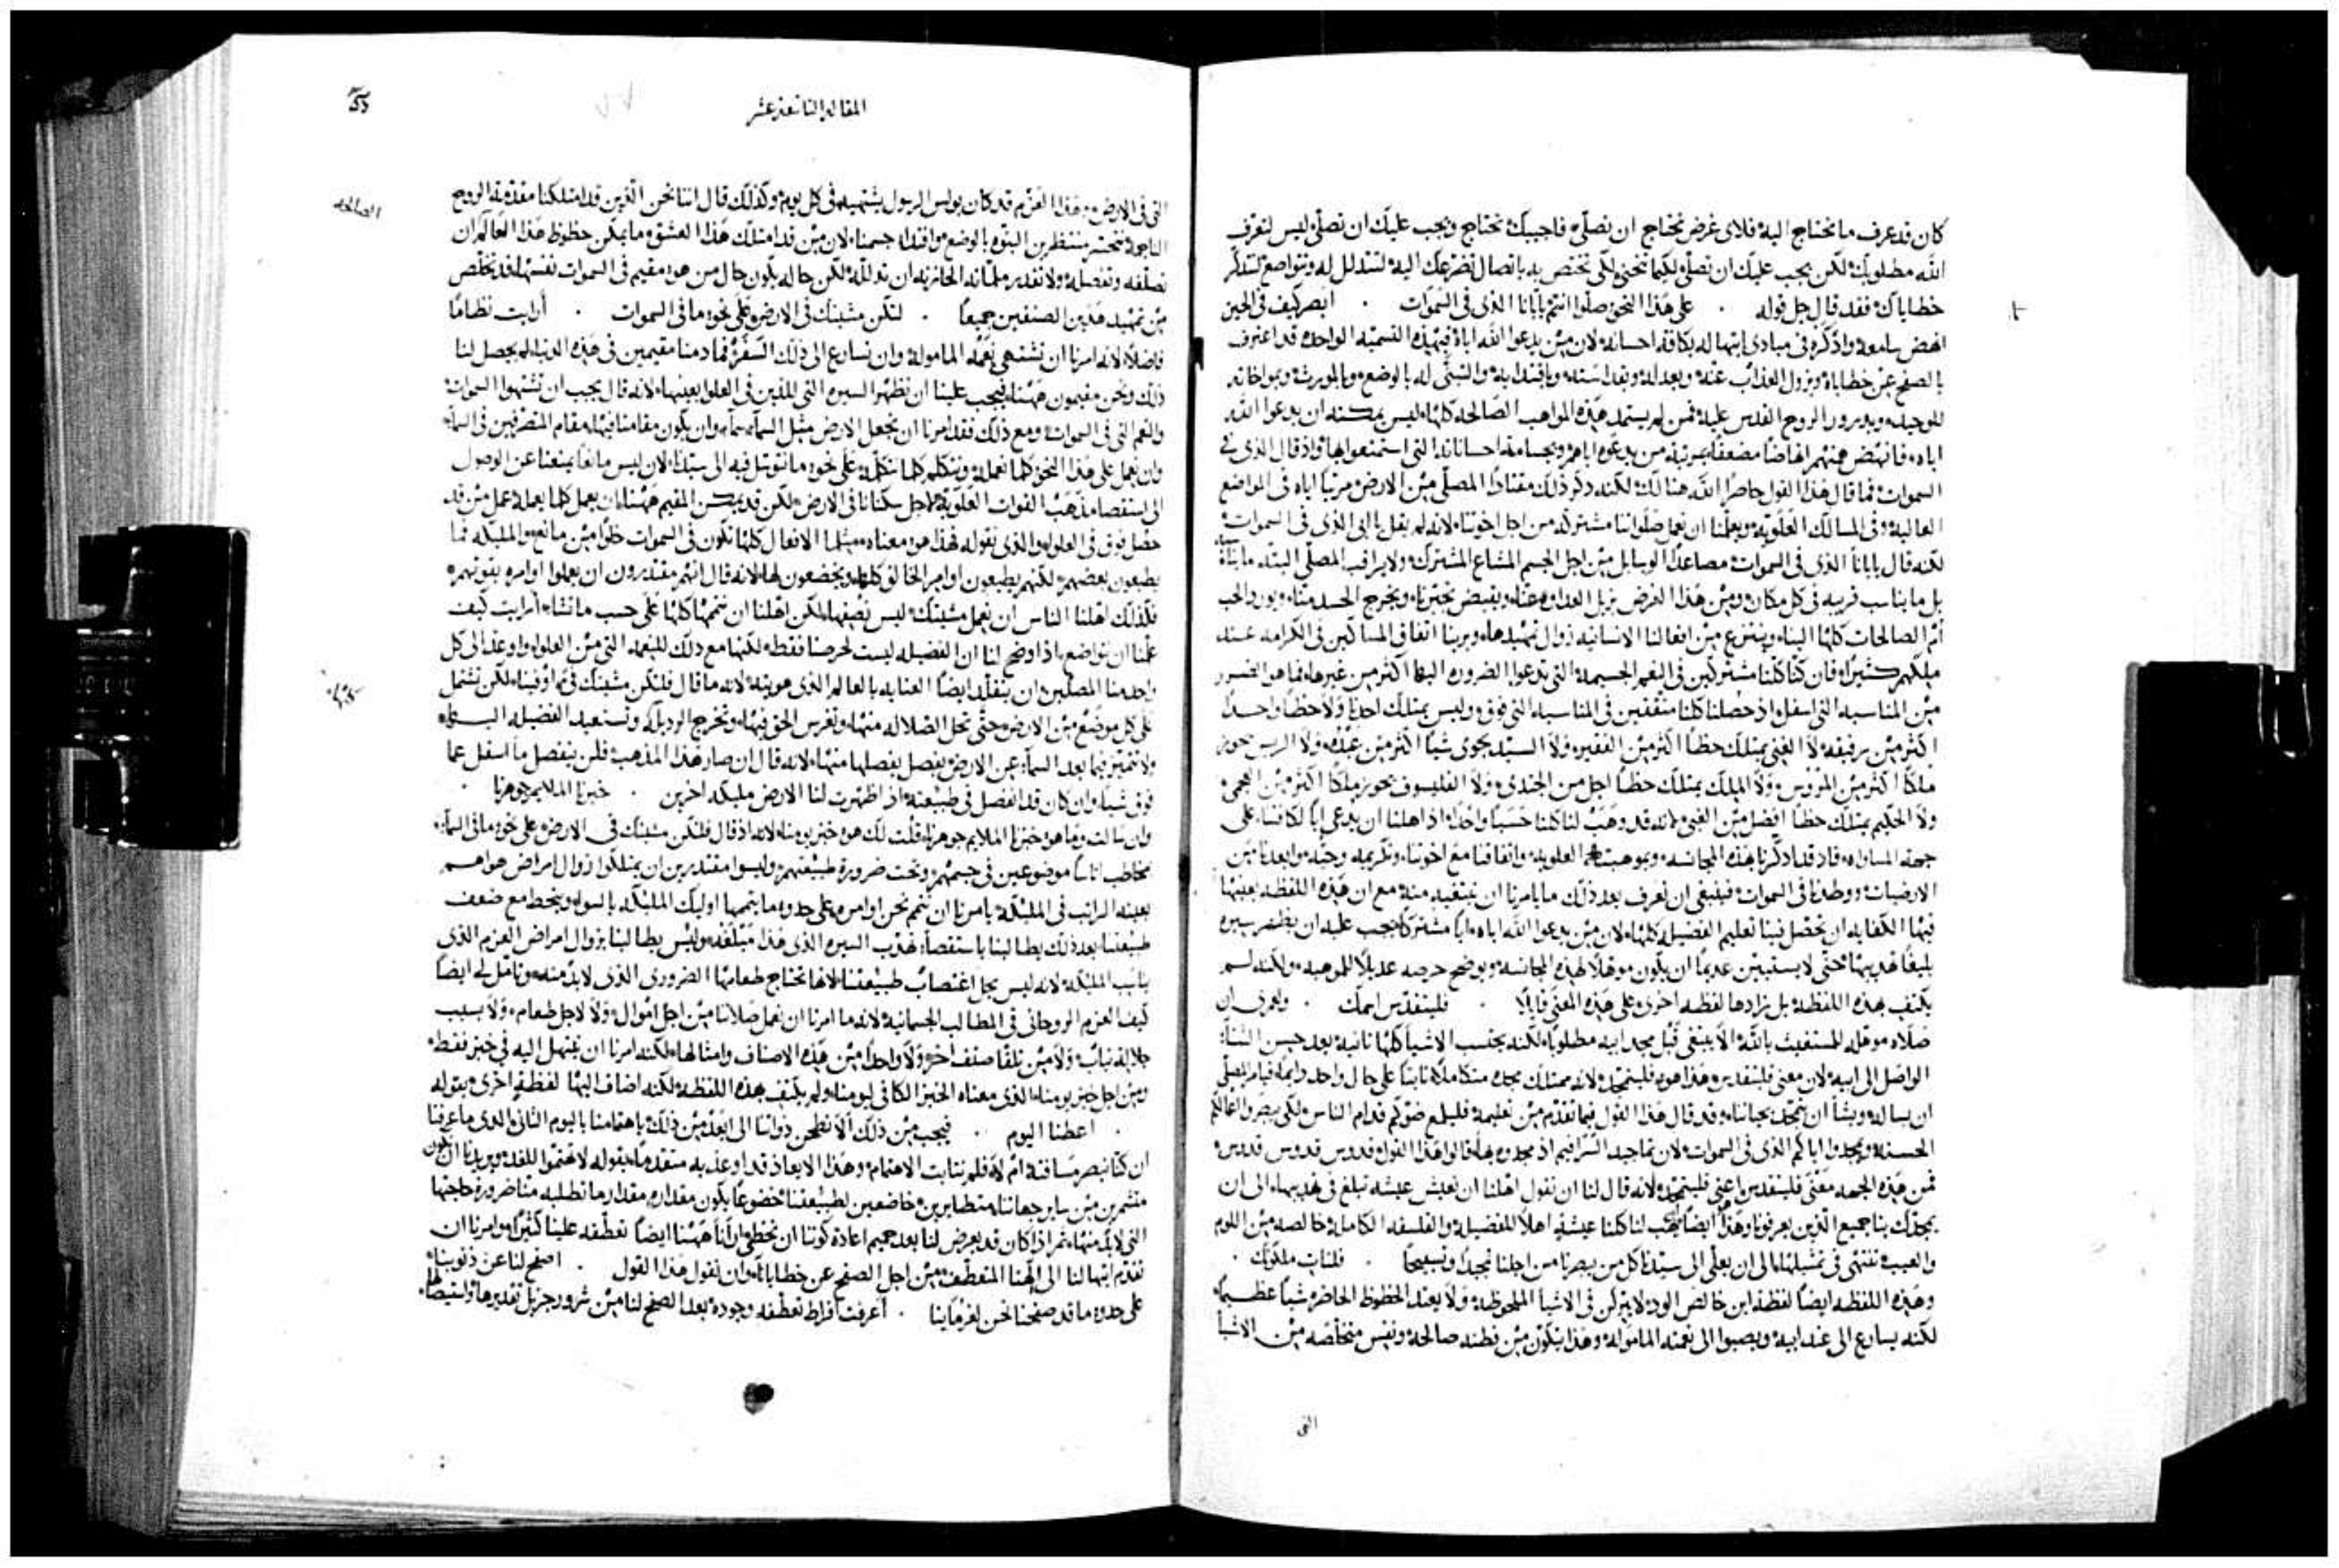 كان قد عرف ما نحتاج اليه فلاى غرض نحتاج ان نصلى فاجيبك نحتاج ويجب عليك ان تصلى ليس لتعرف
الله مطلوبك لكن يجب عليك ان تصلى لكيما تنحنى لكى تختص به باتصال تضرعك اليه لتتذلل له وتتواضع لتتذكر
خطاياك فقد قال جل قوله . على هذا النحو صلوا انتم يا ابانا الذى فى السموات . ابصر كيف فى الحين
انهض سامعه واذكره فى مبادى ابتهاله بكافة احسانه لان من يدعوا الله اباه فبهذه التسميه الواحده قد اعترف
بالصفح عن خطاياه وبزوال العذاب عنه وبعدله وبقداسته وبافتدايه والتبنى له بالوضع وبالوراثه وبمواخاته
للوحيد وبورود الروح القدس عليه فمن لم يستمد هذه المواهب الصالحه كلها ليس يمكنه ان يدعوا الله
اباه فانهض همتهم انهاضا مضعفا بمرتبة من يدعوه اباهم وبجسامة احساناته التى استمتعوا بها واذ قال الذى فى
السموات فما قال هذا القول حاصرا الله هنالك لكنه ذكر ذلك مقتادا المصلى من الارض مرتبا اياه فى المواضع
العاليه وفى المسالك العلويه ويعلمنا ان نعمل صلواتنا مشتركه من اجل اخوتنا لانه لم يقل يا ابى الذى فى السموات
لكنه قال يا ابانا الذى فى السموات مصاعدا الوسايل من اجل الجسم المشاع المشترك ولا يراقب المصلى البته ما يناسبه
بل ما يناسب قريبه فى كل مكان ومن هذا الغرض يزيل العداوه عنا ويقبض تجبرنا ويخرج الحسد منا ويورد الحب
ام الصالحات كلها الينا وينتزع من افعالنا الانسانيه زوال تمهيدها ويرينا اتفاق المساكين فى الكرامه عند
ملكهم كثيرا فان كنا كلنا مشتركين فى النعم الجسيمه التى تدعوا الضروره اليها اكثر من غيرها فما هو الضرر
من المناسبه التى اسفل اذ حصلنا كلنا متفقين فى المناسبه التى فوق وليس يمتلك احدنا ولا حظا واحدا
اكثر من رفيقه لا الغنى يمتلك حظا اكثر من الفقير ولا السيد يحوى شيا اكثر من عبده ولا الريس يحوز
ملكا اكثر من المرووس ولا الملك يمتلك حظا اجل من الجندى ولا الفيلسوف يحوز ملكا اكثر من العجمى
ولا الحكيم يمتلك حظا افضل من الغبى لانه قد وهب لنا كلنا حسبا واحدا اذ اهلنا ان يدعى ابا لكافتنا على
جهة المساواه فاذ قد اذكرنا بهذه المجانسه وبموهبته العلويه واتفاقنا مع اخوتنا وتكريمه وحبه وابعدنا من
الارضيات ووطدنا فى السموات فينبغى ان نعرف بعد ذلك ما يامرنا ان نبتغيه منه مع ان هذه اللفظه بعينها
فيها الكفايه ان تحصل فينا تعليم الفضيله كلها لان من يدعوا الله اباه وابا مشتركا يجب عليه ان يظهر سيره
بليغا تهذيبها حتى لا يستبين عديما ان يكون موهلا لهذه المجانسه ويوضح حرصه عديلا للموهبه ولكنه لم
يكتف بهذه اللفظه بل زادها لفظه اخرى على هذه المعنى قايلا . فليتقدس اسمك . ولعمرى ان
صلاه موهله للمستغيث بالله الا يبتغى قبل مجد ابيه مطلوبا لكنه يحتسب الاشيا كلها ثانيه بعد حسن الثنا
الواصل الى ابيه لان معنى فليتقدس وهذا هو فليتمجد لانه ممتلك مجده متكاملا ثابتا على حال واحد دايما فيامر المصلى
ان يساله ويشا ان يتمجد بحياتنا وقد قال هذا القول فيما تقدم من تعليمه فليلمع ضوكم قدام الناس لكى يبصروا اعمالكم
الحسنه ويمجدوا اباكم الذى فى السموات لان تماجيد السرافيم اذ مجدوه بها قالوا هذا القول قدوس قدوس قدوس
فمن هذه الجهه معنى فليتقدس اعنى فليتمجد لانه قال لنا ان نقول اهلنا ان نعيش عيشه تبلغ فى تهذيبها الى ان
يمجدك بنا جميع الذين يعرفونا وهذا ايضا يهب لنا كلنا عيشه اهلا للفضيله والفلسفه الكامله خالصه من اللوم
والعيب تنتهى فى تمثيلها الى ان يعلى الى سيدنا كل من يبصرنا من اجلنا تمجيدا وتسبيحا . فليات ملكوتك .
وهذه اللفظه ايضا لفظة ابن خالص الود لا يركن فى الاشيا الملحوظه ولا يعتد الحظوظ الحاضره شيا عظيما
لكنه يسارع الى عند ابيه ويصبوا الى نعمته الماموله وهذا يتكون من فطنه صالحه ونفس متخلصه من الاشيا
التى
المقاله التاسعه عشر
التى فى الارض وهذا العزم قد كان بولس الرسول يشتهيه فى كل يوم وكذلك قال اننا نحن الذين قد امتلكنا مقدمة الروح
الصالحه
الناجمه نتحسر منتظرين البنوه بالوضع وافتداء جسمنا لان من قد امتلك هذا العشق ما يمكن حظوظ هذا العالم ان
تصلفه وتفصله ولا تقدر ملماته الحازنه ان تذلله لكن حاله يكون حال من هو مقيم فى السموات نفسها قد تخلص
من تمهيد هذين الصنفين جميعا . لتكن مشيتك فى الارض على نحو ما فى السموات . ارايت نظاما
فاضلا لانه امرنا ان نشتهى نعمه الماموله وان نسارع الى ذلك السفر فما دمنا مقيمين فى هذه الدنيا لم يحصل لنا
ذلك ونحن مقيمون ههنا فيجب علينا ان نظهر السيره التى للذين فى العلو بعينها لانه قال يجب ان تشتهوا السموات
والنعم التى فى السموات ومع ذلك فقد امرنا ان نجعل الارض مثل السماء سماء وان يكون مقامنا فيها مقام المتصرفين فى السماء
وان نعمل على هذا النحو كلما نعمله ونتكلم كلما نتكلمه على نحو ما نتوسل فيه الى سيدنا لان ليس مانعا يمنعنا عن الوصول
الى استقصاء مذهب القوات العلويه لاجل سكنانا فى الارض لكن قد يمكن المقيم ههنا ان يعمل كلما يعمله عمل من قد
حصل فوق فى العلو والذى نقوله بهذا هو معناه مثلما الافعال كلها تكون فى السموات خلوا من مانع والمليكه فما
يطيعون بعضهم لكنهم يطيعون اوامر الخالق كلها ويخضعون لها لانه قال انهم مقتدرون ان يعملوا اوامره بقوتهم
فكذلك اهلنا الناس ان نعمل مشيتك ليس نصفها لكن اهلنا ان نتممها كلها على حسب ما تشاء ارايت كيف
علمنا ان نتواضع اذ اوضح لنا ان الفضيله ليست لحرصنا فقط لكنها مع ذلك للنعمه التى من العلو واوعز الى كل
واحد منا المصلين ان يتقلد ايضا العنايه بالعالم الذى هو بيته لانه ما قال فلتكن مشيتك فى او فينا لكن تشتمل
على كل موضع من الارض حتى تحل الضلاله منها وتغرس الحق فيها وتخرج الرذيله وتستعيد الفضيله اليها
ولا تتميز فيما بعد السماء عن الارض بفصل يفصلها منها لانه قال ان صار هذا المذهب فلن ينفصل ما اسفل عما
فوق شيا وان كان قد انفصل فى طبيعته اذ اظهرت لنا الارض مليكه اخرين . خبزنا الملايم جوهرنا .
وان سالت وما هو خبزنا الملايم جوهرنا قلت لك هو خبز يومنا لانه اذ قال فلتكن مشيتك فى الارض على نحو ما فى السماء
يخاطب اناسا موضوعين فى جسمهم وتحت ضرورة طبيعتهم وليسوا مقتدرين ان يمتلكوا زوال امراض هواهم
بعينه الراتب فى المليكه يامرنا ان نتمم نحن اوامره على حدو ما يتممها اوليك المليكه بالسوا وينحط مع ضعف
طبيعتنا بعد ذلك يطالبنا باستقصاء تهذيب السيره الذى هذا مبلغه وليس يطالبنا بزوال امراض العزم الذى
يناسب المليكه لانه ليس يحل اغتصاب طبيعتنا لانها تحتاج طعامها الضرورى الذى لا بد منه وتامل لى ايضا
كيف العزم الروحانى فى المطالب الجسمانيه لانه ما امرنا ان نعمل صلاتنا من اجل اموال ولا لاجل طعام ولا بسبب
جلالة ثياب ولا من تلقا صنف اخر ولا واحدا من هذه الاصناف وامثالها لكنه امرنا ان نبتهل اليه فى خبز فقط
ومن اجل خبز يومنا الذى معناه الخبز الكافى ليومنا ولم يكتف بهذه اللفظه لكنه اضاف اليها لفظه اخرى بقوله
. اعطنا اليوم . فيجب من ذلك الا نطحن ذواتنا الى ابعد من ذلك باهتمامنا باليوم الثانى الذى ما عرفنا
ان كنا نبصر مسافته ام لا فلم نثابت الاهتمام وهذا الايعاذ قد اوعز به متقدما بقوله لا تهتموا للغد ويريدنا ان نكون
متشمرين من ساير جهاتنا متطايرين خاضعين لطبيعتنا خضوعا يكون مقداره مقدار ما تطلبه منا ضرورة حاجتها
التى لا بد منها ثم اذ كان قد يعرض لنا بعد حميم اعادة كوننا ان نخطى ارانا ههنا ايضا تعطفه علينا كثيرا وامرنا ان
نقدم ابتهالنا الى الهنا المتعطف من اجل الصفح عن خطايانا وان نقول هذا القول . اصفح لنا عن ذنوبنا
على حدو ما قد صفحنا نحن لغرماينا . اعرفت افراط تعطفه وجوده بعد الصفح لنا من شرور جزيل تقديرها